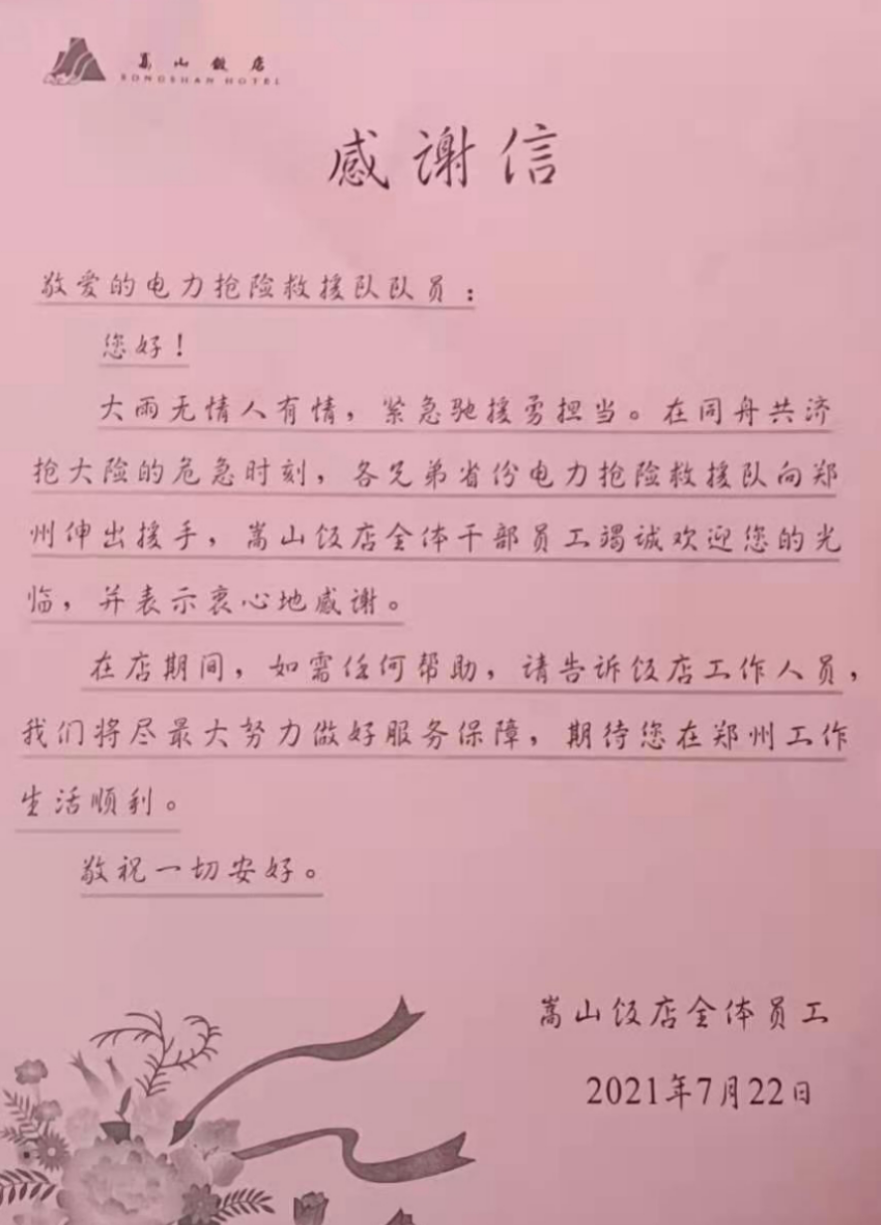 嵩山饭店
SONGSHAN HOTEL
感谢信
敬爱的电力抢险救援队队员：
您好！
大雨无情人有情，紧急驰援勇担当。在同舟共济
抢大险的危急时刻，各兄弟省份电力抢险救援队向郑
州伸出援手，嵩山饭店全体干部员工竭诚欢迎您的光
临，并表示衷心地感谢。
在店期间，如需任何帮助，请告诉饭店工作人员，
我们将尽最大努力做好服务保障，期待您在郑州工作
生活顺利。
敬祝一切安好。
嵩山饭店全体员工
2021年7月22日